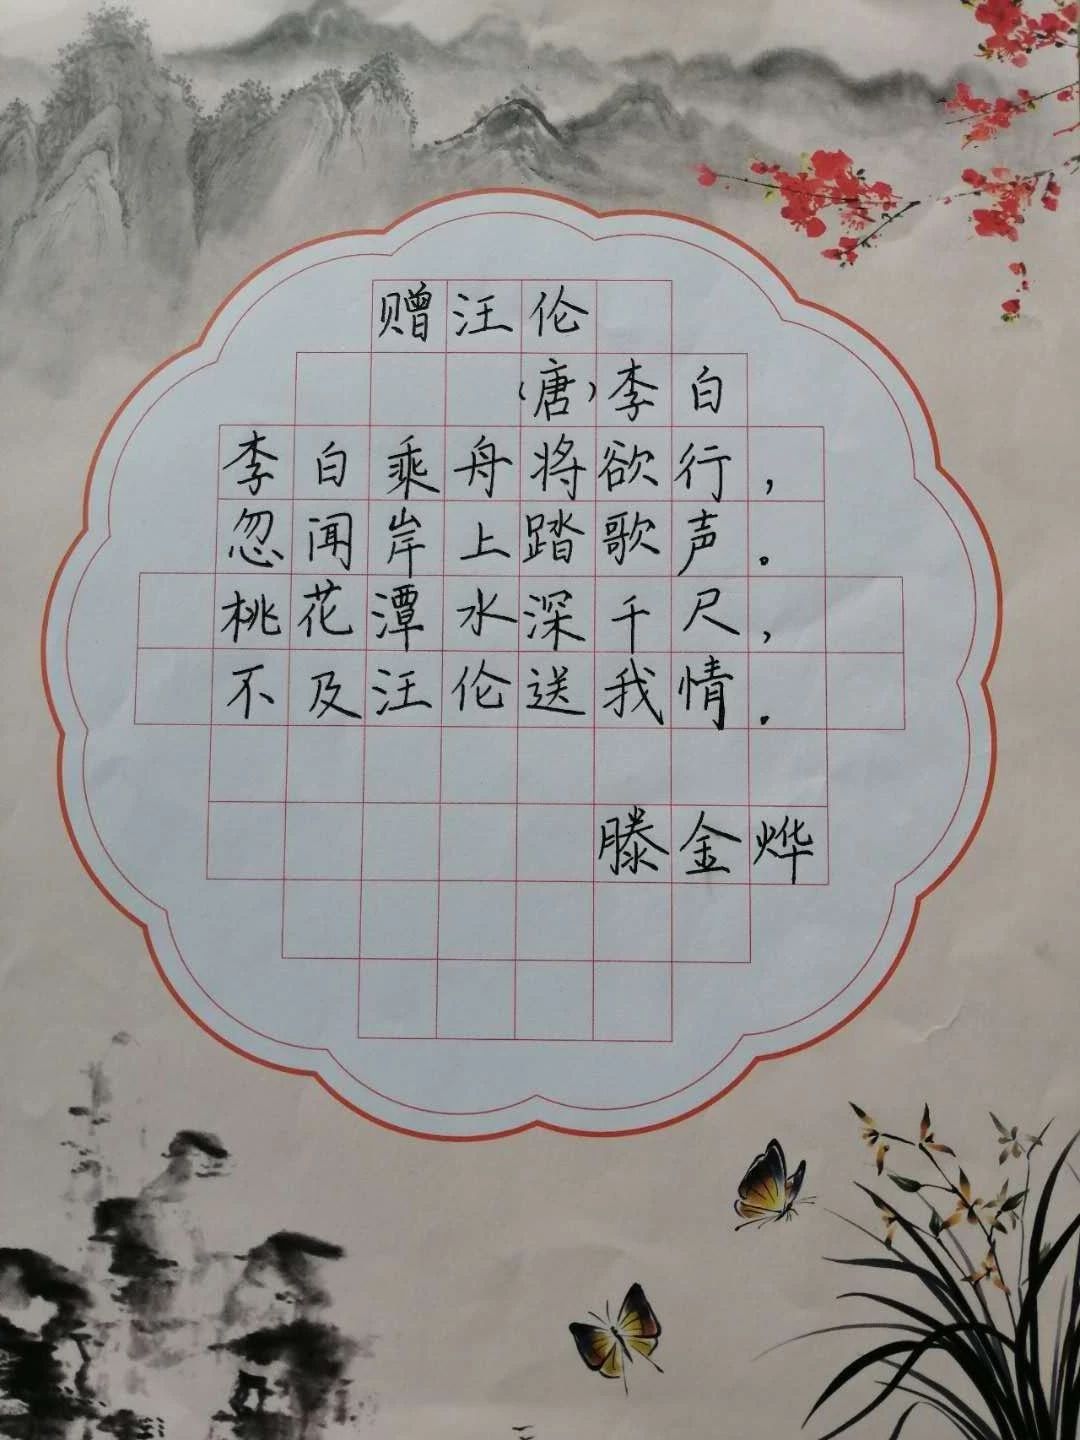 赠汪伦
（唐）李白
李白乘舟将欲行，
忽闻岸上踏歌声。
桃花潭水深千尺，
不及汪伦送我情。
滕金烨